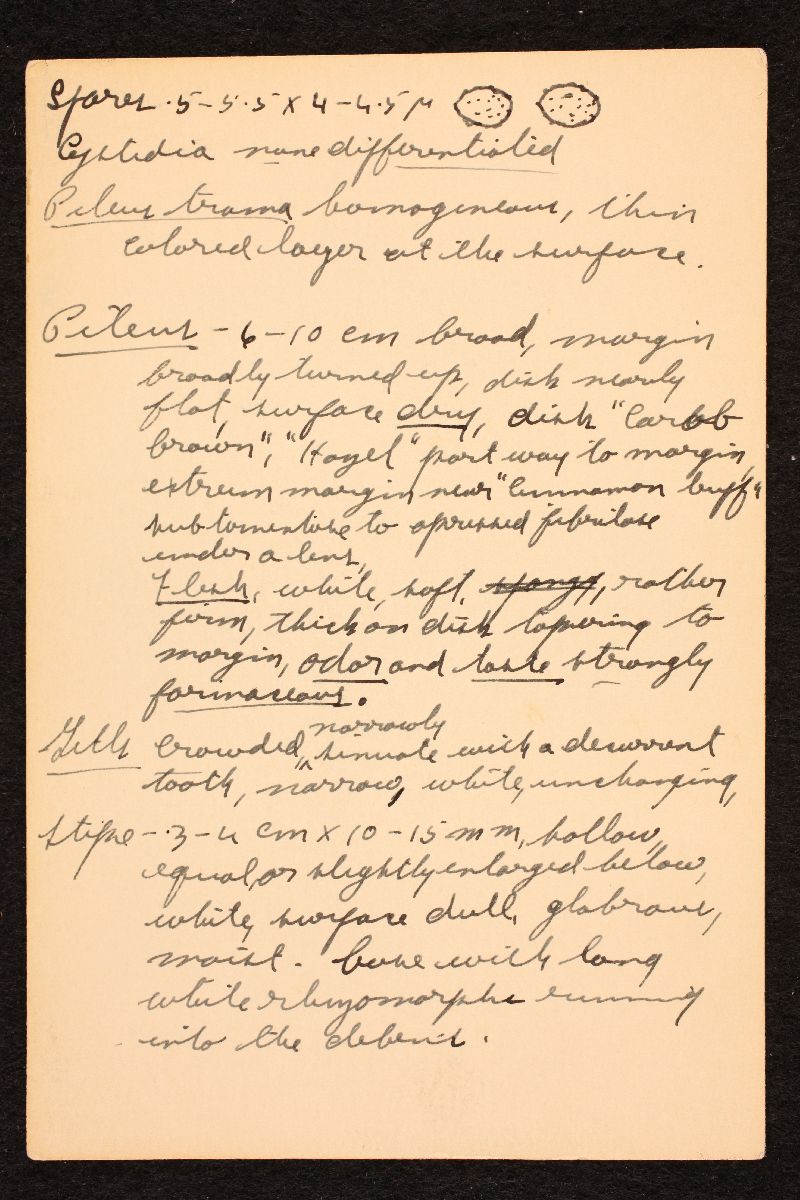 Spores 5-5.5 x 4-4.5 μ
Cystidia none differentiated
Pileus trama homogeneous, thin
colored layer at the surface.
Pileus - 6-10 cm broad, margin
broadly turned up, disk nearly
flat, surface dry, disk "Carob
brown", "Hazel" part way to margin,
extreem margin near "Cinnamon buff"
subtomentose to apressed fibrilose
under a lens,
Flesh, white, soft, spongy, rather
firm, thick on disk tapering to
margin, odor and taste strongly
farinaceous.
narrowly
Gills crowded, sinuate with a decurrent
tooth, narrow, white, unchanging,
Stipe - 3-4 cm x 10-15 mm, hollow,
equal, or slightly enlarged below,
white, surface dull, glabrous,
moist. base with long
white rhyzomorphs running
into the debris.